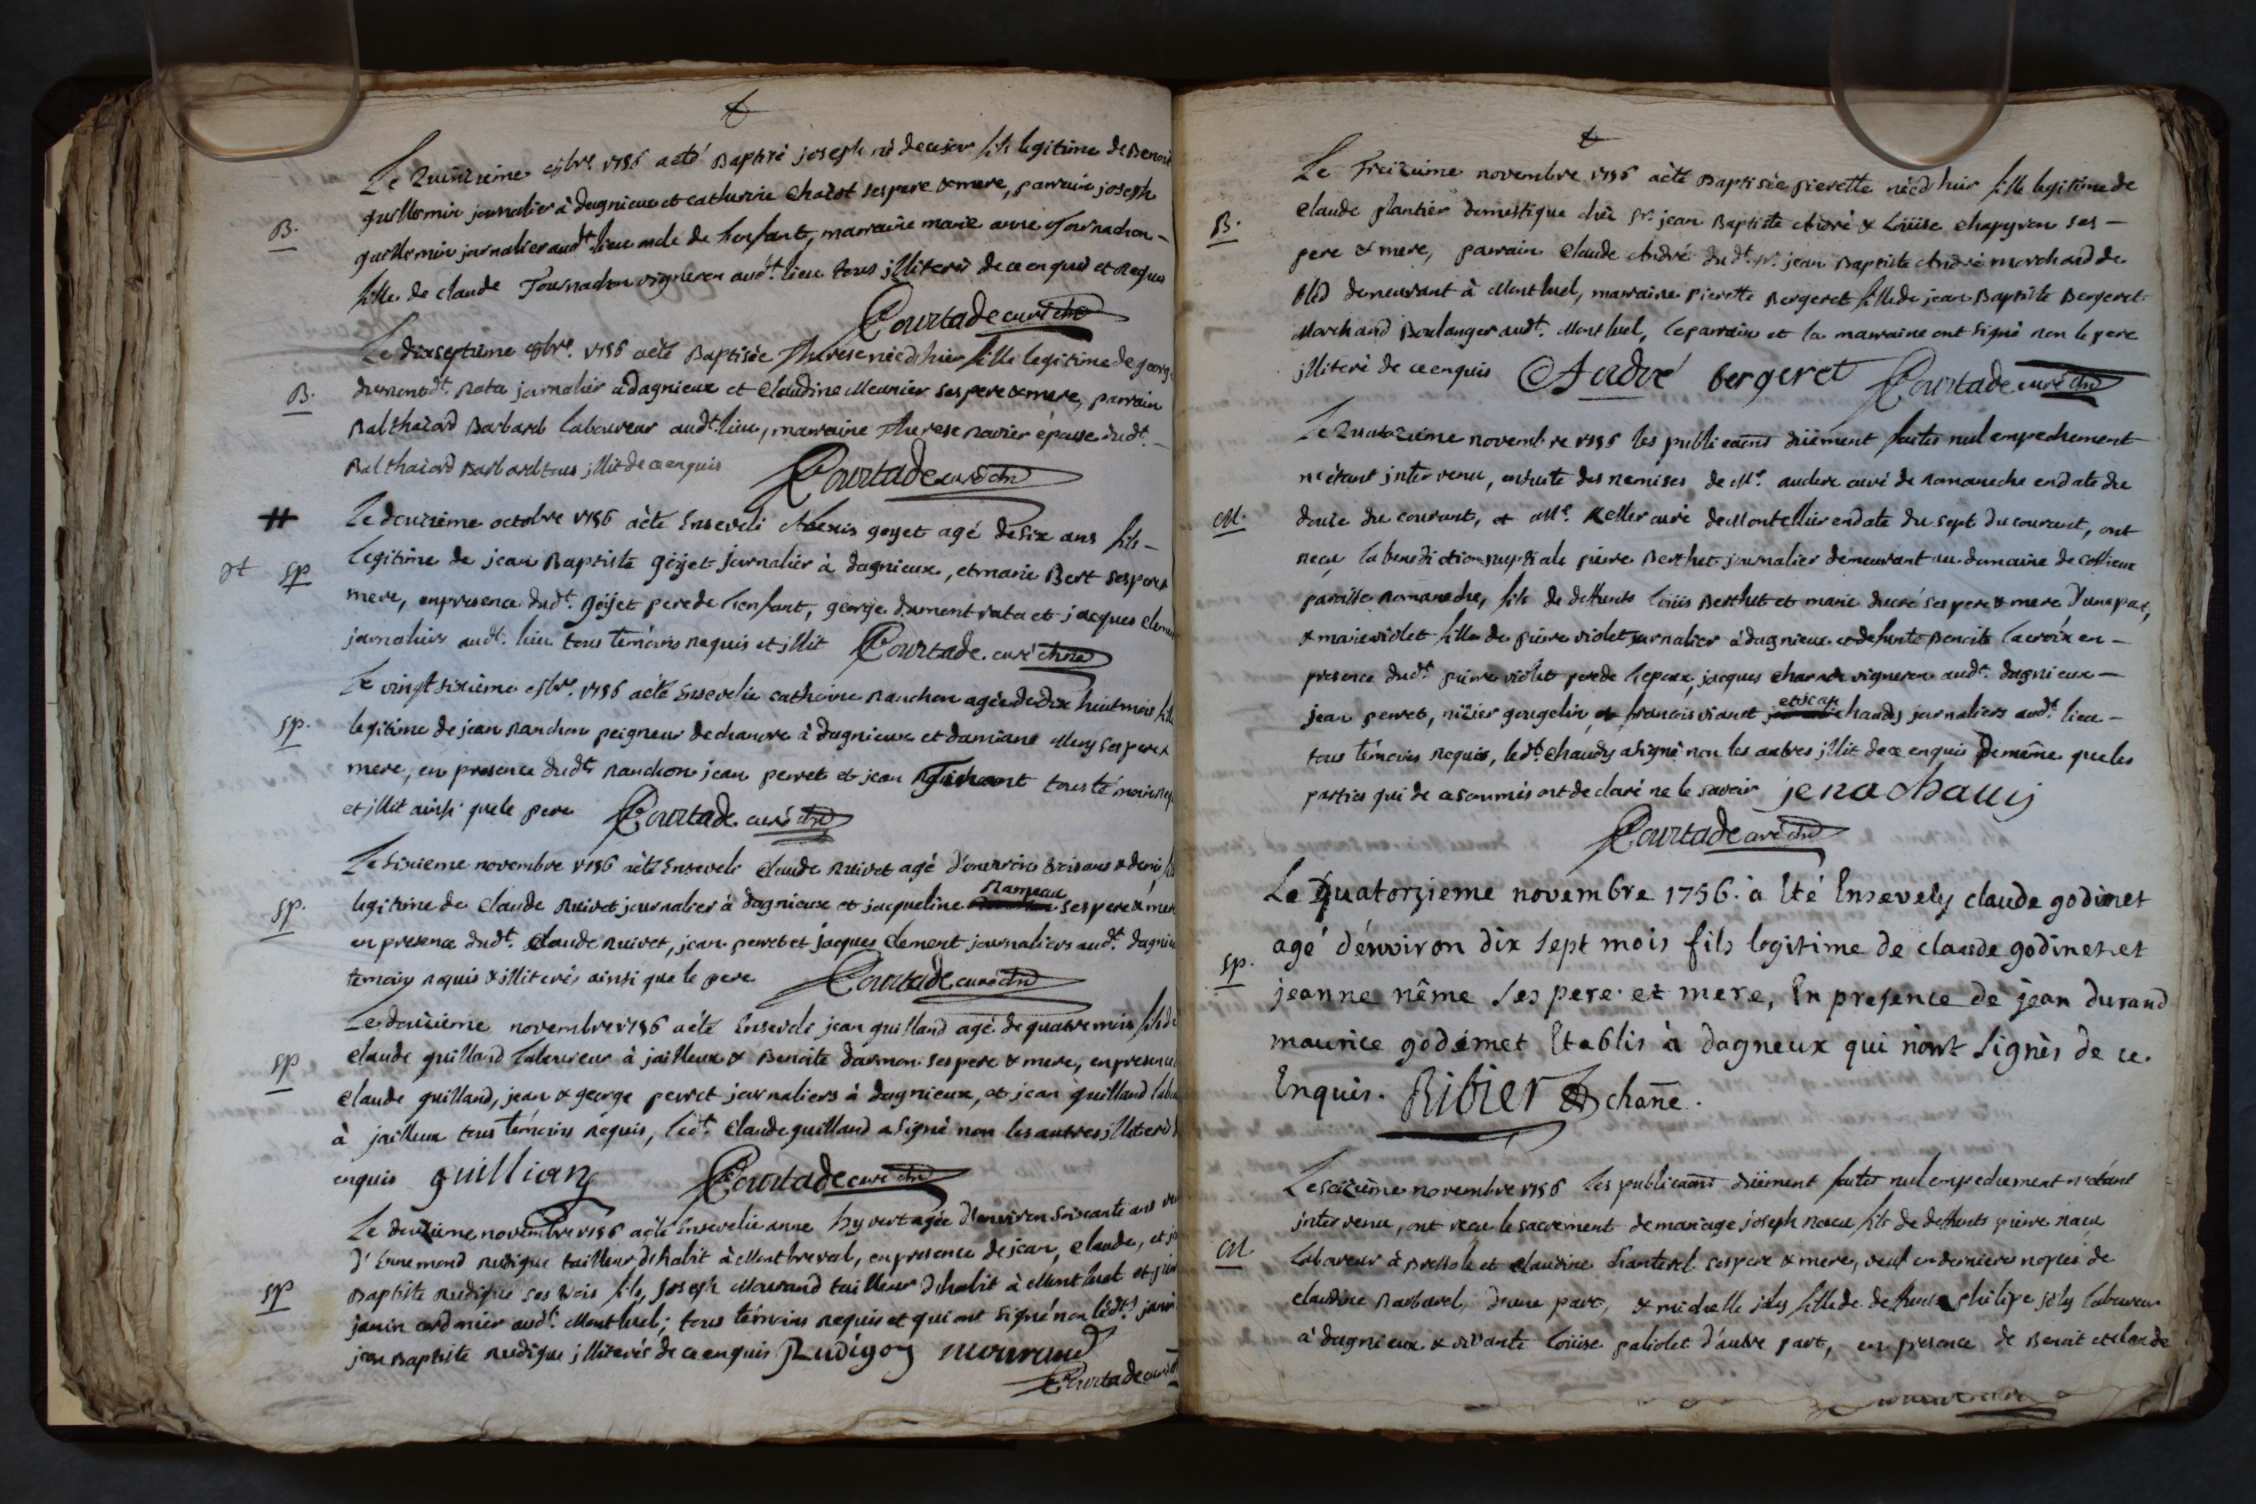 Le Quinzieme 8bre. 1756 a eté Baptisé joseph né de ce jour fils legitime de Benoit
B.
guillermin journalier à dagnieux et catherine Chazot ses pere & mere, parrain joseph
guillermin journalier audt. lieu oncle de l'enfant, marraine marie anne Tournachon
fille de claude Tournachon vigneron audt. lieu tous illiterés de ce enquis et requis
Courtade curé
Le dixseptieme 8bre. 1756 a eté Baptisée Therese née d'hier fille legitime de george
B.
dumont dt. Rata journalier à dagnieux et Claudine Meunier ses pere & mere, parrain
Balthazard Barbarel laboureur audt. lieu, marraine Therese Ravier épouse dudt.
Balthazard Barbarel tous illit de ce enquis
Courtade curé
Le douzième octobre 1756 a eté Enseveli Alexis goyet agé de six ans fils
sp
legitime de jean Baptiste göyet journalier à dagnieux, et marie Bert ses pere &
mere, en presence dudt. göyet pere de l'enfant, george dumont rata et jacques clement
journaliers audt. lieu tous temoins requis et illit Courtade curé
Le vingt sixième 8bre. 1756 a eté Ensevelie catherine Ranchon agée de dix huit mois fille
sp.
legitime de jean Ranchon peigneur de chanvre à dagnieux et damiane Mery ses pere &
mere, en presence dudt. Ranchon jean perret et jean tous témoins req
et illit ainsi que le pere Courtade curé
Le sixieme novembre 1756 a eté Enseveli Claude Ruivet agé d'environ trois ans & demi
sp.
legitime de Claude Ruivet journalier à dagnieux et jacqueline Rameau ses pere & mere
en presence dudt. Claude Ruivet, jean perret et jacques Clement journaliers audt. dagnieux
temoins requis & illiterés ainsi que le pere Courtade curé
Le douzieme novembre 1756 a eté Enseveli jean guilland agé de quatre mois fils de
sp
Claude guilland laboureur à jailleux & Benoite darmon ses pere & mere, en presence
Claude guilland, jean & george perret journaliers à dagnieux, et jean guilland
à jailleux tous temoins requis, ledt. Claude guilland a signé non les autres illiterés
enquis guillian Courtade curé
Le douzieme novembre 1756 a eté Ensevelie anne hyvert agée d'environ soixante ans
d'Ennemond Rudigue tailleur d'habit à Montbreval, en presence de jean, Claude, et
sp
Baptiste Rudigue ses trois fils, joseph Mourand tailleur d'habit à Mont luel et
janin cordonier audt. Montluel; tous témoins requis et qui ont signé non
jean Baptiste Rudigue illiterés de ce enquis Rudigoy mourand
Courtade curé
Le Treizieme novembre 1756 a eté Baptisée pierette née d'hier fille legitime de
B.
Claude plantier domestique chez sr. jean Baptiste André & Loüise Chapyron ses
pere & mere, parrain Claude André dudt. sr. jean Baptiste André marchand de
bled demeurant à Montluel, marraine pierette Bergeret fille de jean Baptiste Bergeret
Marchand Boulanger audt. Montluel, le parrain et la marraine ont signé non le pere
illiteré de ce enquis André bergeret Courtade curé
Le Quatorzieme novembre 1756 les publicaons düement faites nul empechement
n'étant intervenu, ensuite des remises de Mr. curé de Romaneche en date du
M.
douze du courant, et Mr. curé de Montellier en date du sept du courant, ont
reçu la benediction nuptiale pierre Berthet journalier demeurant au domaine de
paroisse Romaneche, fils de deffunts Loüis Berthet et marie ducré ses pere & mere d'une part,
& marie violet fille de pierre violet journalier à dagnieux et defunte Benoite lacroix en
presence dudt. pierre violet pere de l'epouse, jacques vigneron audt. dagnieux
jean perret, nizier gougelin francois viannt et jean chaudy journaliers audt. lieu
tous témoins requis, ledt. chaudy a signé non les autres illit de ce enquis de même que les
parties qui de ce soumis ont declaré ne le savoir jena chauij
Courtade curé
Le Quatorzieme novembre 1756. a Eté Ensevely claude godinet
agé d'environ dix sept mois fils legitime de claude godinet et
sp.
jeanne nême ses pere et mere, En presence de jean durand
maurice godémet Etablis à dagneux qui n'ont signès de ce.
Enquis. Ribier chane.
Le seizieme novembre 1756 les publicaons düement faites nul empechement n'étant
intervenu, ont reçu le sacrement de mariage joseph fils de deffunts pierre
M
laboureur à Bressole et Claudine Chanterel ses pere & mere, veuf en derniere nopces de
claudine Barbarel, d'une part, & michelle joly fille de defunt philipe joly laboureur
à dagnieux & vivante Loüise paliolet d'autre part, en presence de Benoit et claude